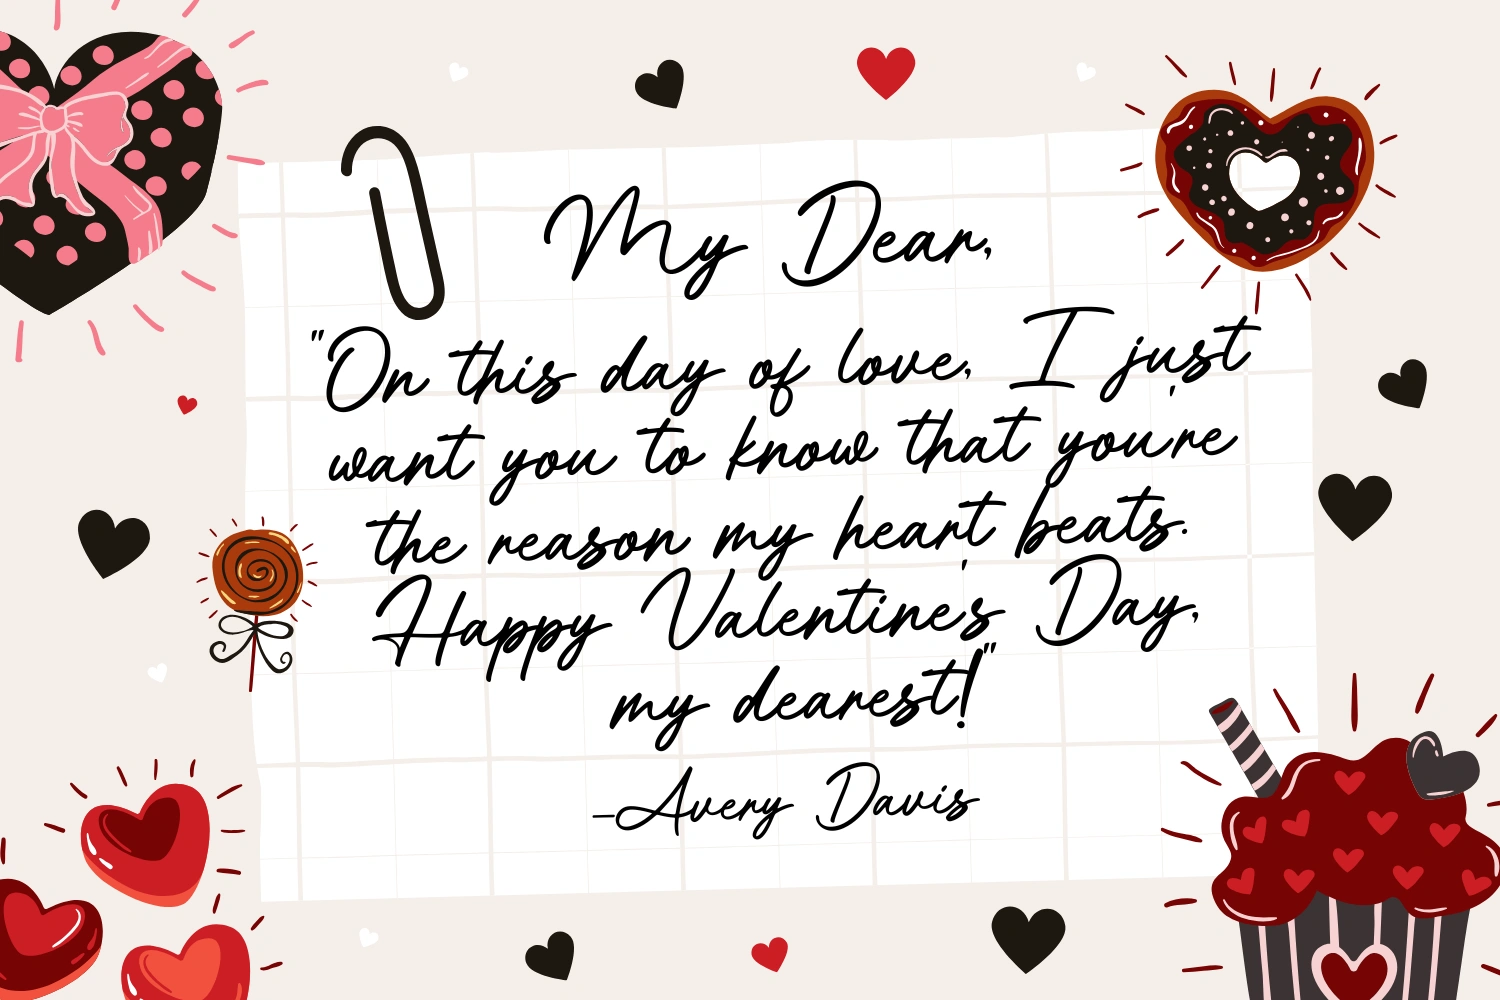 My Dear,
"On this day of love, I just
want you to know that you're
the reason my heart beats.
Happy Valentine's Day,
my dearest!"
—Avery Davis